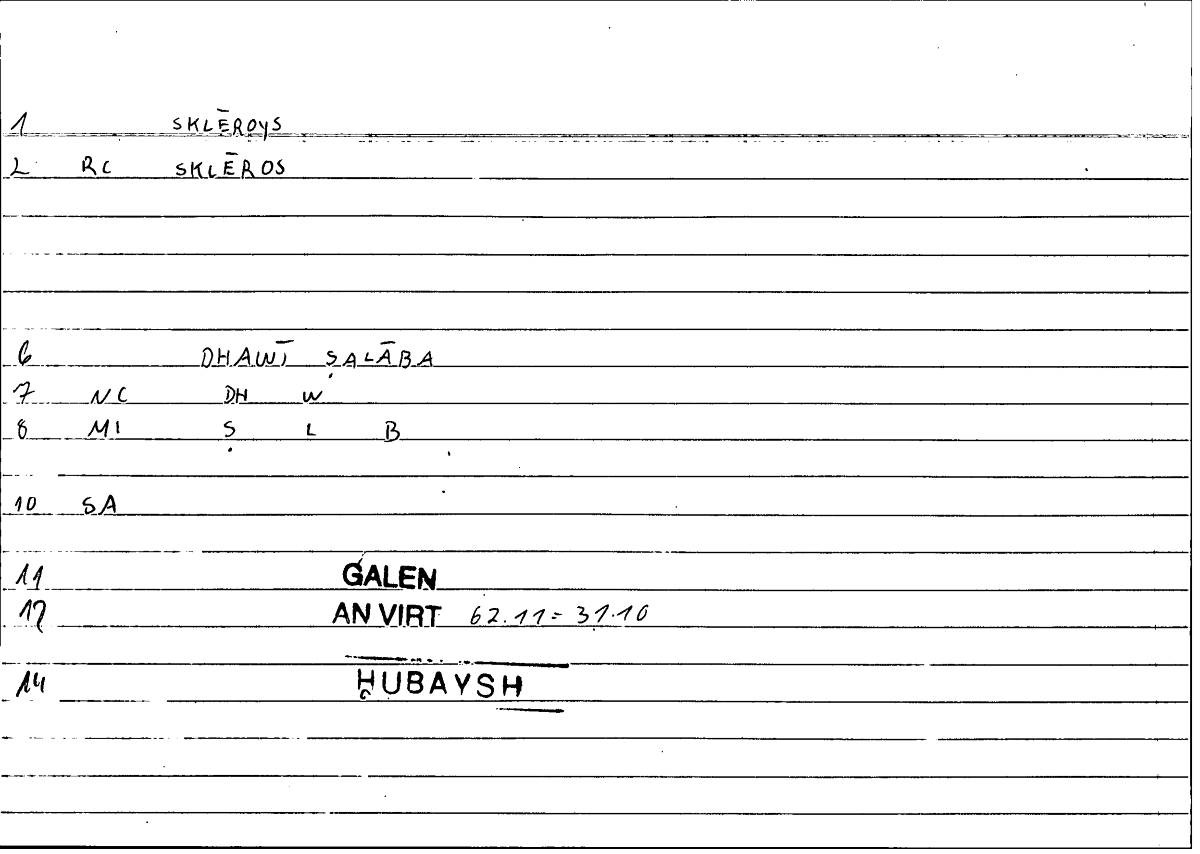 1 SKLĒROYS
2 RC SKLĒROS
6 DHAWĪ ṢALĀBA
7 NC DH W
8 MI Ṣ L B
10 SA
11 GALEN
12 AN VIRT 62.11 = 31.10
14 ḤUBAYSH